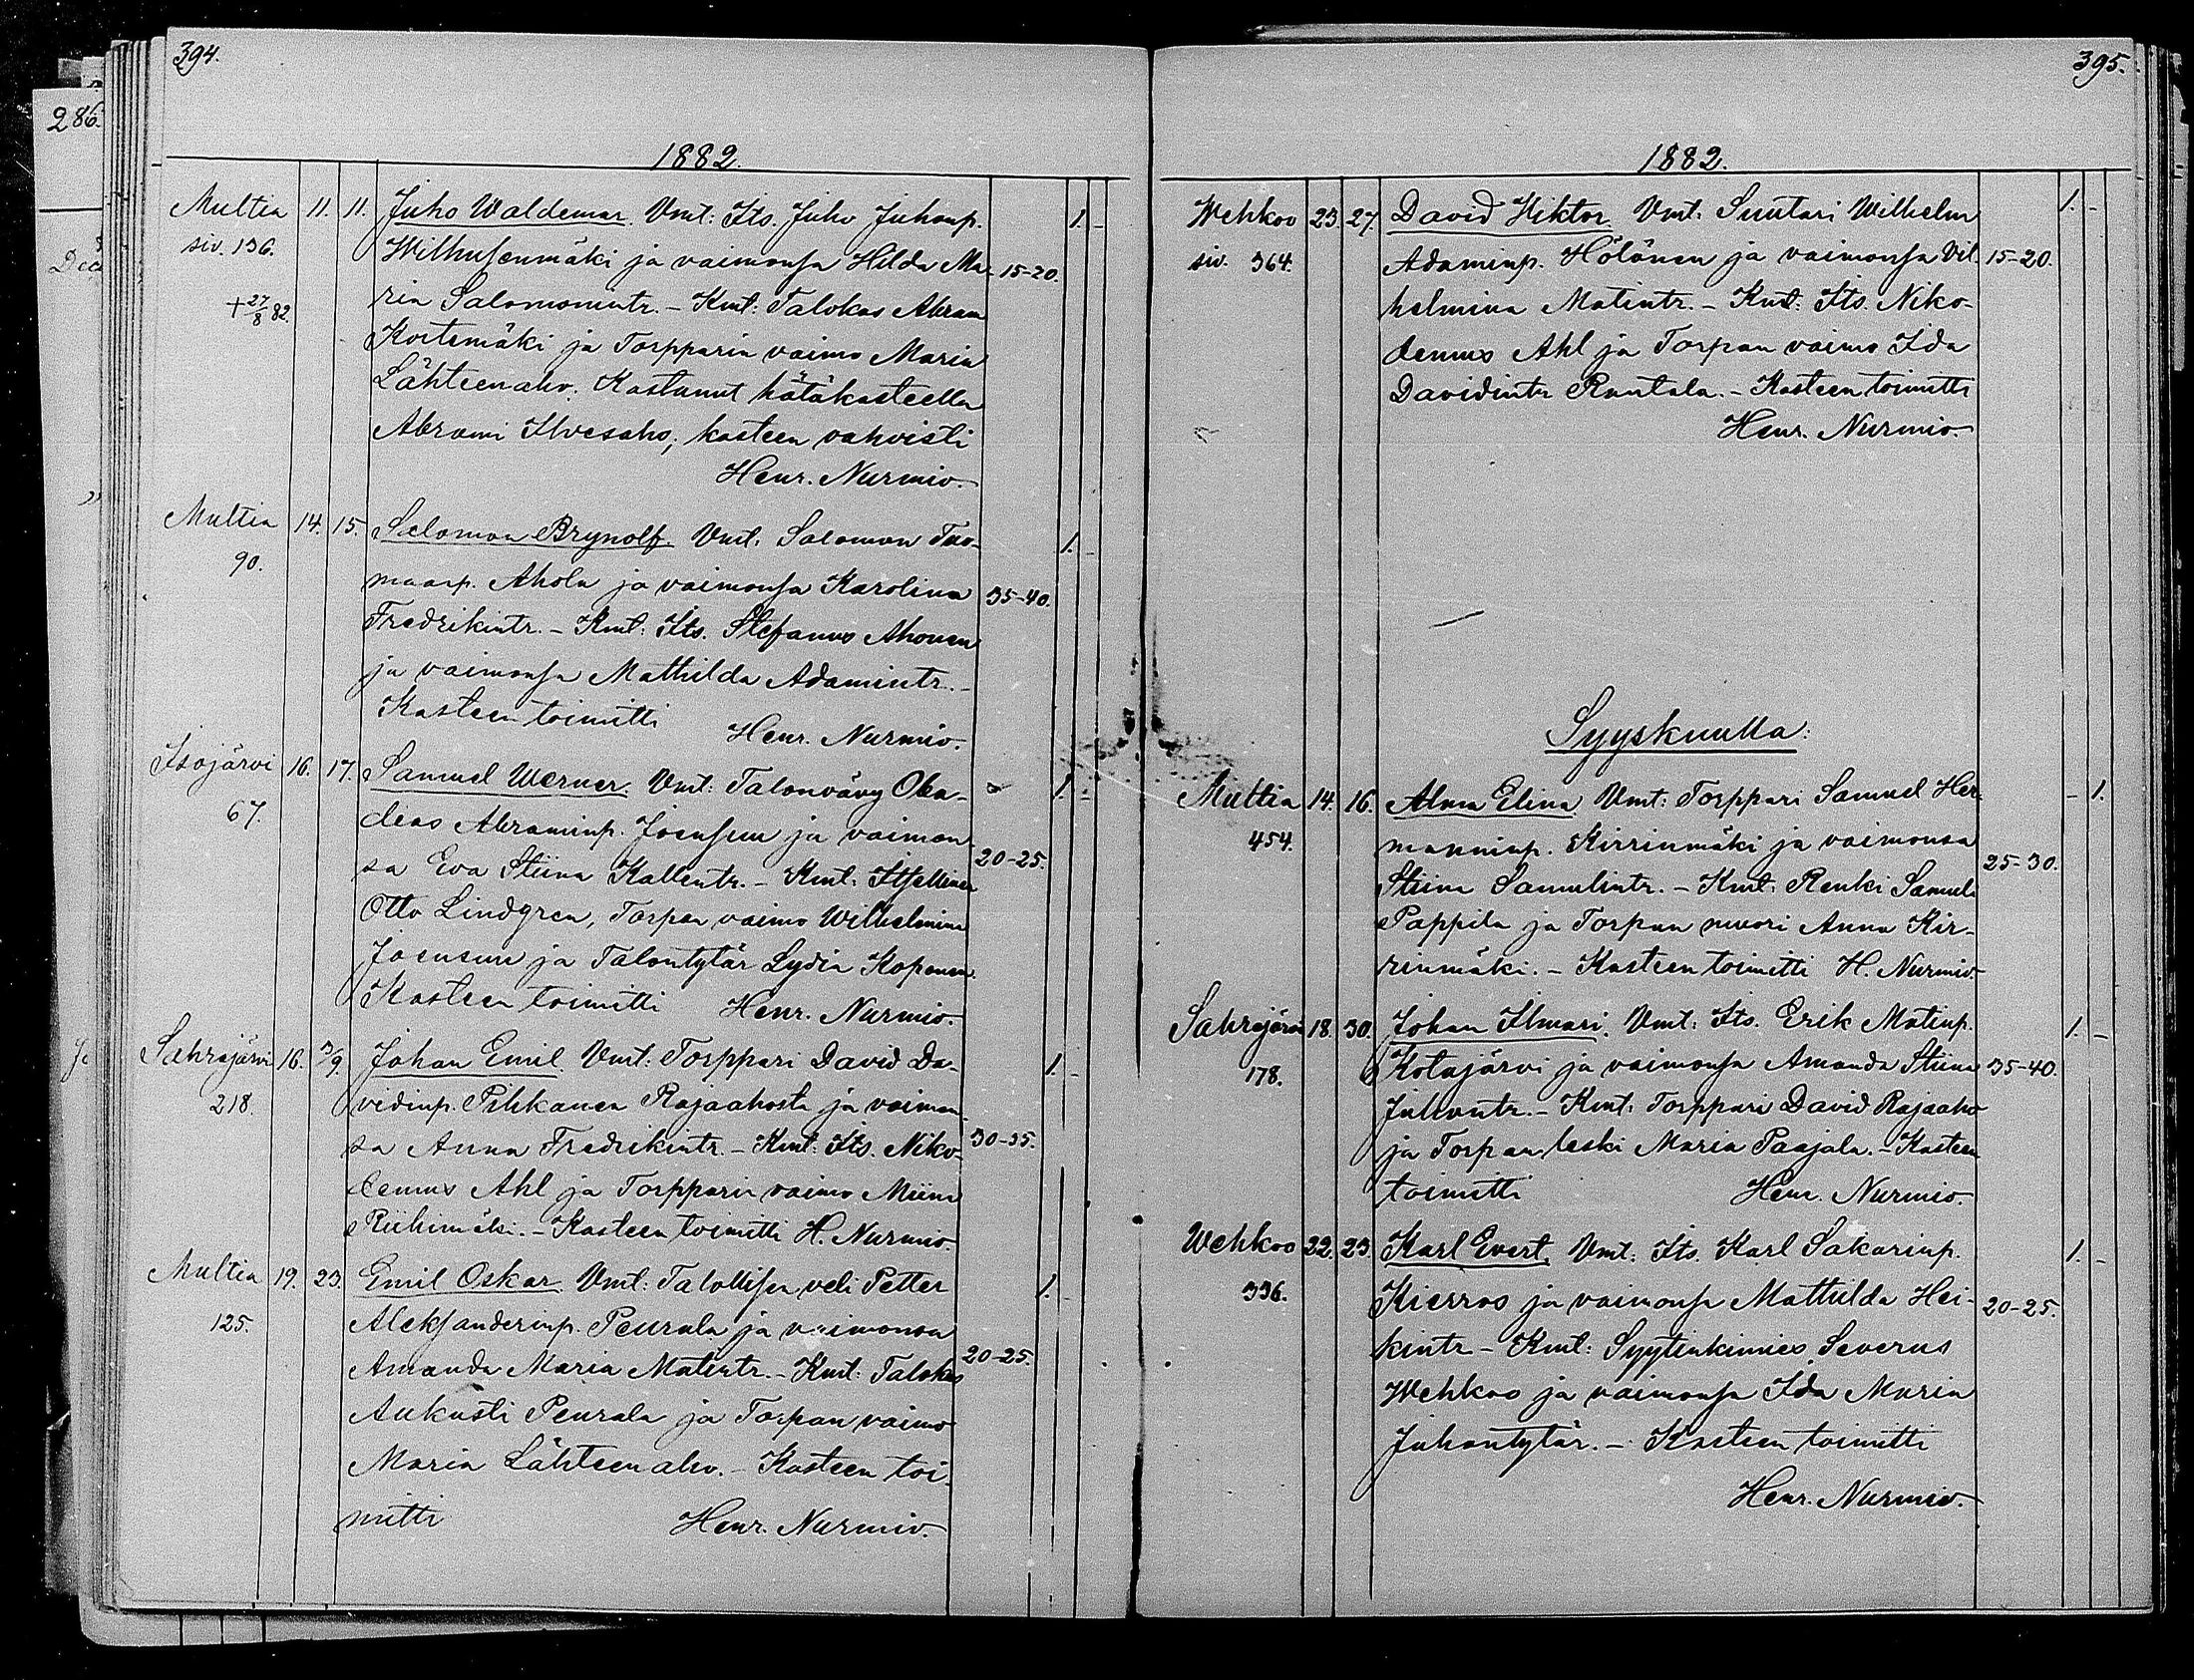 394.
286.
1882.
Multia 11. 11. Juho Waldemar. Vmt: Its. Juho Juhonp. 1. -
siv. 136. Wilhusenmäki ja vaimonsa Hilda Ma- 15-20.
+ 27/8 82. ria Salomonintr. - Kmt: Talokas Abram
Kortemäki ja Torpparin vaimo Maria
Lähteenaho. Kastanut hätäkasteella
Abrami Ilvesaho, kasteen vahvisti
Henr. Nurmio.
Multia 14. 15. Salomon Brynolf. Vmt. Salomon Tuo- 1. -
90. maanp. Ahola ja vaimonsa Karolina 35-40.
Fredrikintr. - Kmt: Its. Stefanus Ahonen
ja vaimonsa Mathilda Adamintr. -
Kasteen toimitti
Henr. Nurmio.
Isojärvi 16. 17. Samuel Werner. Vmt: Talonvävy Oba- 1. -
67. dias Abraminp. Joensuu ja vaimon-
sa Eva Stiina Kallentr. - Kmt: Itsellinen 20-25.
Otto Lindgren, Torpan vaimo Wilhelmina
Joensuu ja Talontytär Lydia Koponen.
Kasteen toimitti Henr. Nurmio.
Sahrajärvi 16. 3/9. Johan Emil. Vmt: Torppari David Da- 1. -
218. vidinp. Pihkanen Rajaahosta ja vaimon-
sa Anna Fredrikintr. - Kmt: Its. Niko- 30-35.
demus Ahl ja Torpparin vaimo Miina
Riihimäki. - Kasteen toimitti H. Nurmio.
Multia 19. 23. Emil Oskar. Vmt: Talollisen veli Petter 1. -
125. Aleksanderinp. Peurala ja vaimonsa
Amanda Maria Matintr. - Kmt: Talokas 20-25.
Aukusti Peurala ja Torpan vaimo
Maria Lähteenaho. - Kasteen toi-
mitti Henr. Nurmio.
395.
1882.
Wehkoo 23. 27. David Viktor. Vmt: Suutari Wilhelm 1. -
siv. 364. Adaminp. Hölönen ja vaimonsa Vil- 15-20.
helmina Matintr. - Kmt: Its. Niko-
demus Ahl ja Torpan vaimo Ida
Davidintr Rantala. - Kasteen toimitti
Henr. Nurmio.
Syyskuulla:
Multia 14. 16. Alma Elina. Vmt: Torppari Samuel Her- - 1.
454. manninp. Kirrinmäki ja vaimonsa
Stiina Samulintr. - Kmt: Renki Samuli 25-30.
Pappila ja Torpan muori Anna Kir-
rinmäki. - Kasteen toimitti H. Nurmio.
Sahrajärvi 18. 30. Johan Ilmari. Vmt: Its. Erik Matinp. 1. -
178. Kotajärvi ja vaimonsa Amanda Stiina 35-40.
Juhontr. - Kmt: Torppari David Rajaaho
ja Torpan leski Maria Paajala. - Kasteen
toimitti Henr. Nurmio.
Wehkoo 22. 23. Karl Evert. Vmt: Its. Karl Sakarinp. 1. -
336. Kierros ja vaimonsa Mathilda Hei- 20-25.
kintr - Kmt: Syytinkimies Severus
Wehkoo ja vaimonsa Ida Maria
Juhontytär. - Kasteen toimitti
Henr. Nurmio.